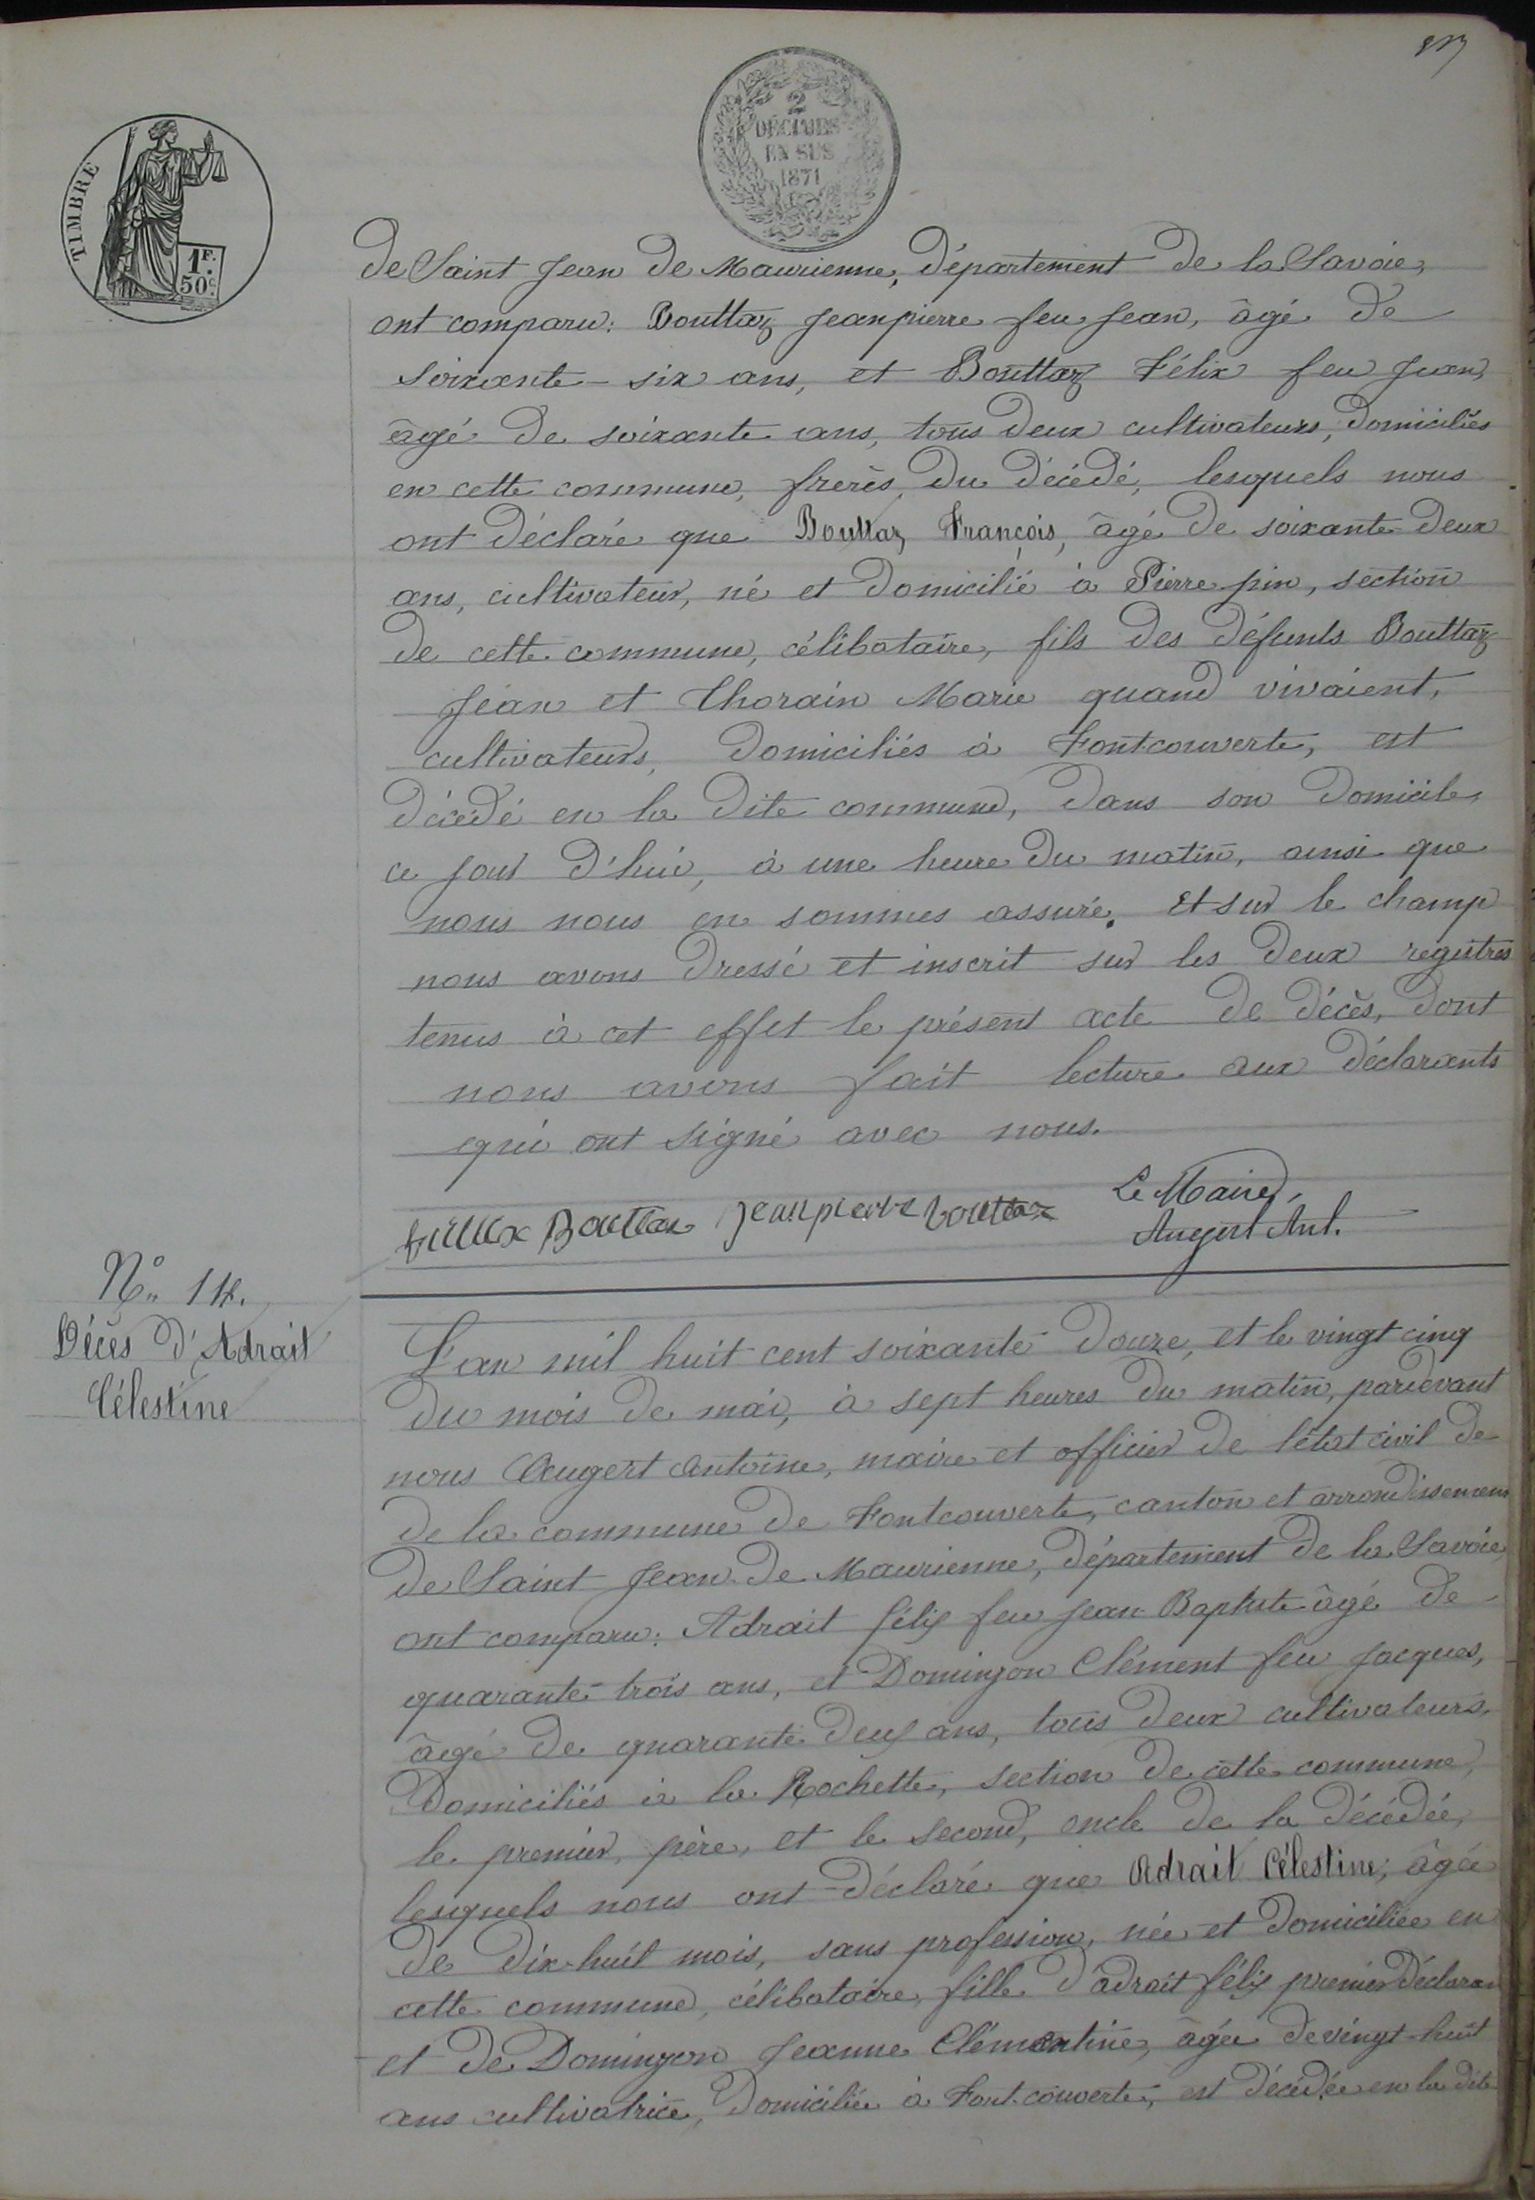 2
DÉCIMES
EN SUS
1871
TIMBRE
1F.
50c.
de Saint Jean de Maurienne, département de la Savoie,
ont comparu: Bouttaz Jeanpierre feu Jean, âgé de
soixante-six ans, et Bouttaz Félix feu Jean,
âgé de soixante ans, tous deux cultivateurs, domiciliés
en cette commune, frères du décédé, lesquels nous
ont déclaré que Bouttaz François, âgé de soixante deux
ans, cultivateur, né et domicilié à Pierre pin, section
de cette commune, célibataire, fils des défunts Bouttaz
Jean et Thorain Marie quand vivaient,
cultivateurs, domiciliés à Fontcouverte, est
décédé en la dite commune, dans son domicile,
ce jour d'hui, à une heure du matin, ainsi que
nous nous en sommes assuré. Et sur le champ
nous avons dressé et inscrit sur les deux registres
tenus à cet effet le présent acte de décès, dont
nous avons fait lecture aux déclarants
qui ont signé avec nous.
Bouttaz Jeanpierre bouttaz
Le Maire,
Augert Ant.
No 14.
Décès d'Adrait
Célestine
L'an mil huit cent soixante douze, et le vingt cinq
du mois de mai, à sept heures du matin, pardevant
nous Augert Antoine, maire et officier de l'état civil de
de la commune de Fontcouverte, canton et arrondissement
de Saint Jean de Maurienne, département de la Savoie
ont comparu: Adrait félix feu Jean Baptiste âgé de
quarante-trois ans, et Dominjon Clément feu Jacques,
âgé de quarante deux ans, tous deux cultivateurs,
domiciliés à la Rochette, section de cette commune,
le premier, père, et le second, oncle de la décédée,
lesquels nous ont déclaré que Adrait Célestine, âgée
de dix-huit mois, sans profession, née et domiciliée en
cette commune, célibataire, fille d'adrait félix premier déclarant
et de Dominjon Jeanne Clémentine, âgée de vingt-huit
ans cultivatrice, domiciliée à Fontcouverte, est décédée en la dite